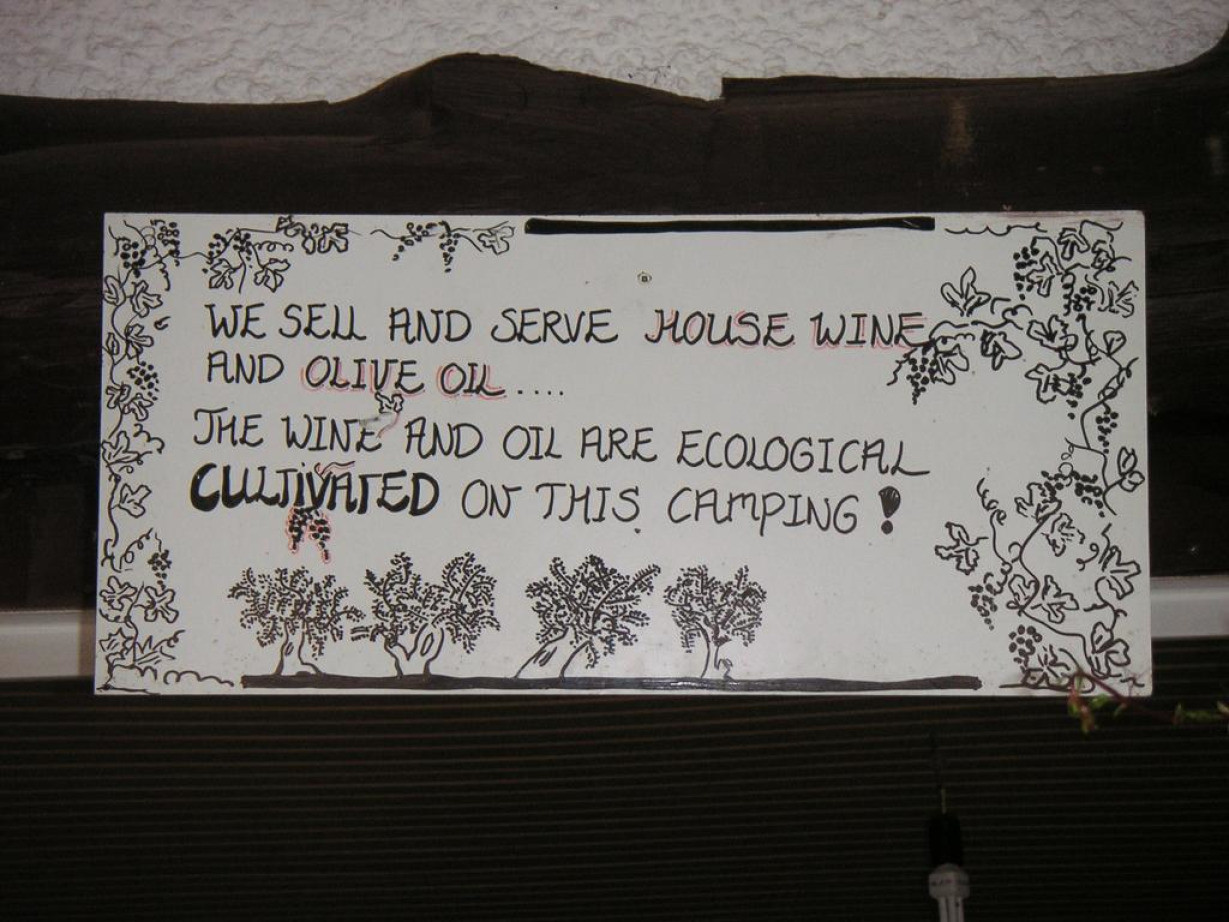 WE SELL AND SERVE HOUSE WINE
AND OLIVE OIL ....
THE WINE AND OIL ARE ECOLOGICAL
CULTIVATED ON THIS CAMPING !